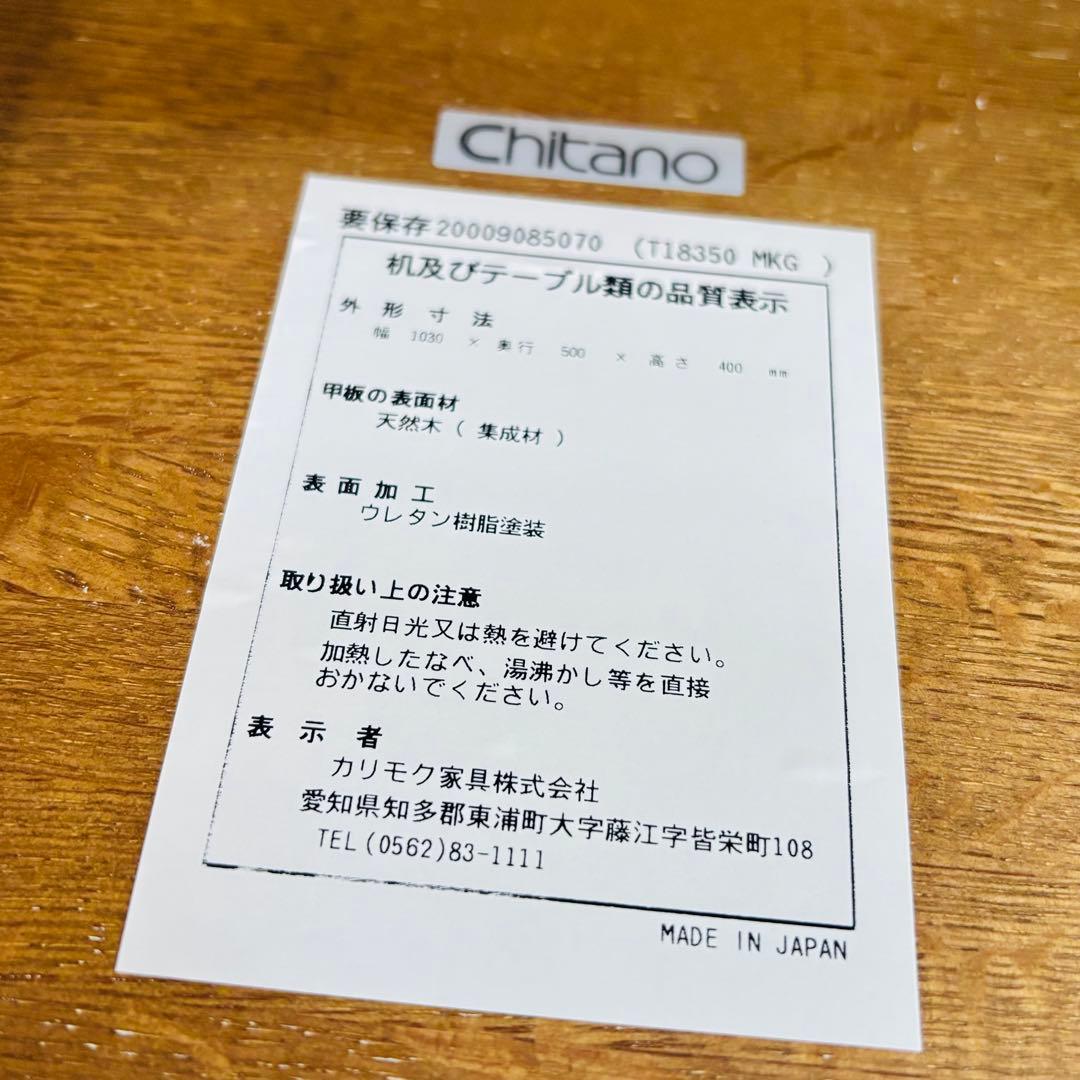 Chitano
要保存20009085070 (T18350 MKG )
机及びテーブル類の品質表示
外形寸法
幅 1030 × 奥行 500 × 高さ 400 mm
甲板の表面材
天然木 ( 集成材 )
表面加工
ウレタン樹脂塗装
取り扱い上の注意
直射日光又は熱を避けてください。
加熱したなべ、湯沸かし等を直接
おかないでください。
表示者
カリモク家具株式会社
愛知県知多郡東浦町大字藤江字皆栄町108
TEL(0562)83-1111
MADE IN JAPAN